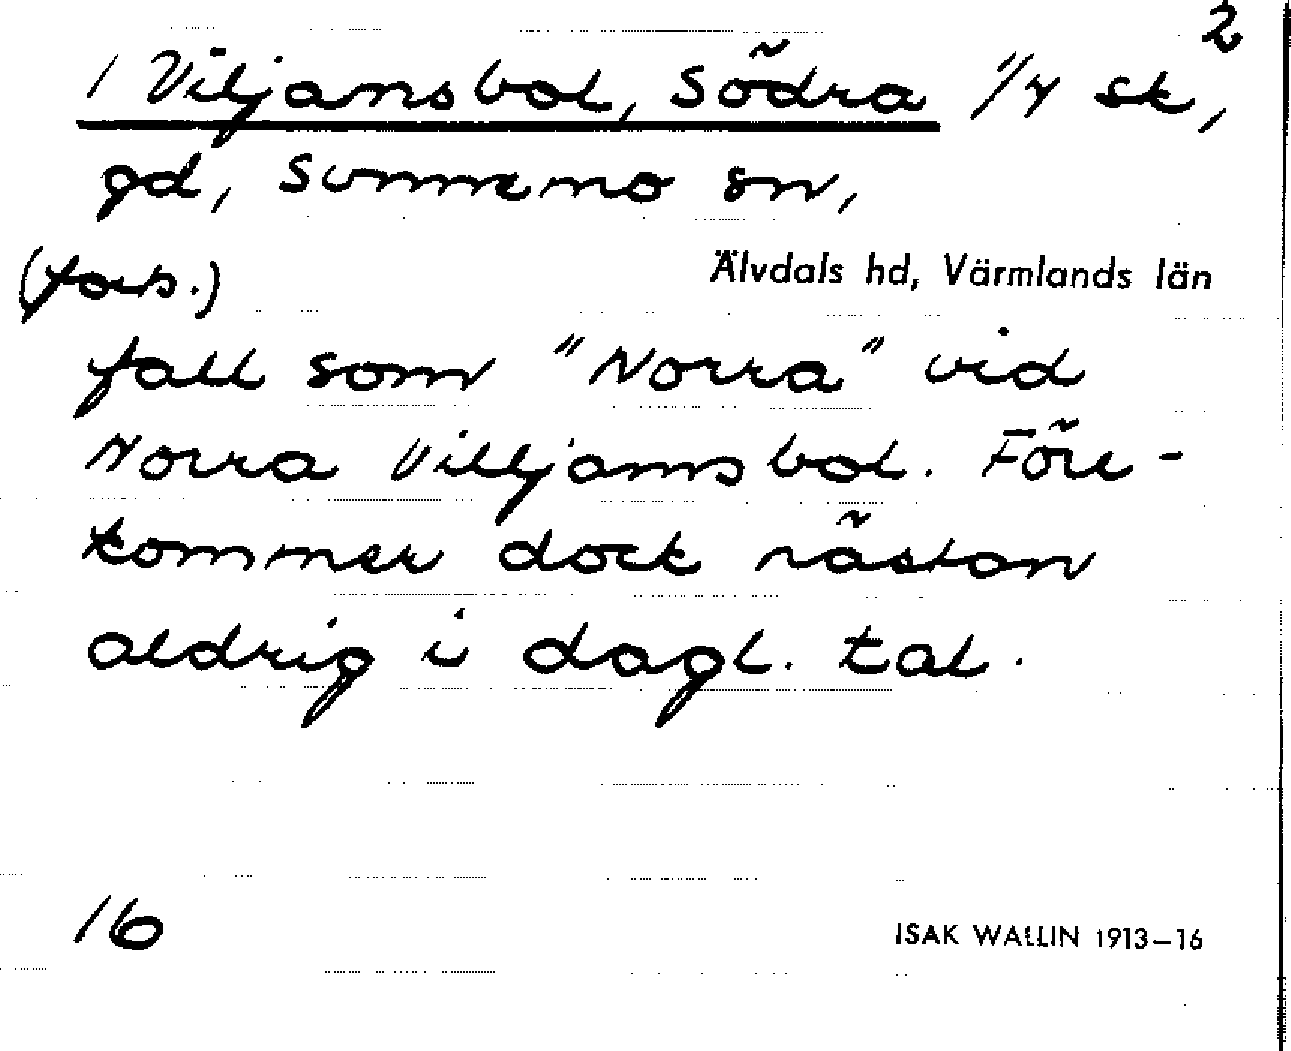 2
1 Viljamsbol, Södra 1/4 sk,
gd, Sunnemo sn,
(forts.)
Älvdals hd, Värmlands län
fall som "Norra" vid
Norra Villjamsbol. Före-
kommer dock nästan
aldrig i dagl. tal.
16
ISAK WALLIN 1913–16